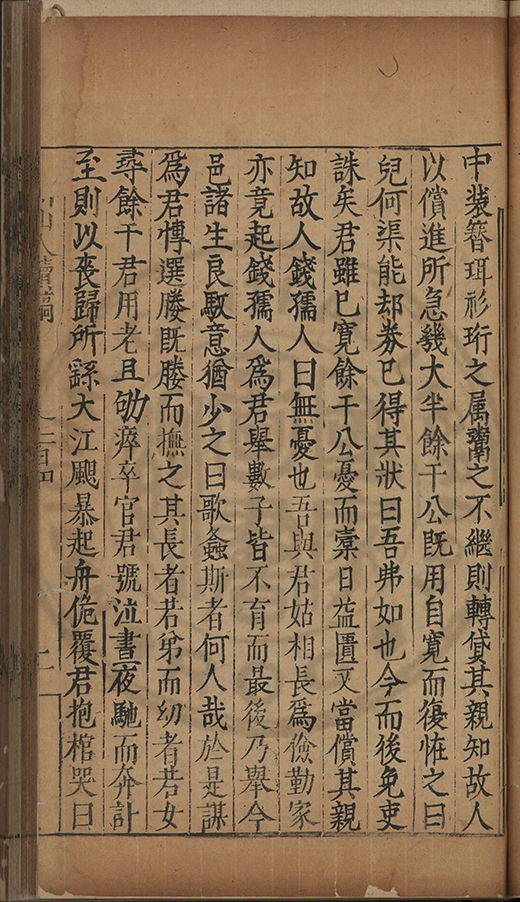 中裝簪珥衫珩之属鬻之不繼則轉貸其親知故人
以償進所急幾大半餘干公既用自寛而復恠之曰
兒何渠能却券巳得其狀曰吾弗如也今而後免吏
誅矣君雖巳寛餘干公憂而橐日益匱又當償其親
知故人錢孺人曰無憂也吾與君姑相長爲儉勤家
亦竟起錢孺人爲君舉數子皆不育而最後乃舉今
邑諸生良馭意猶少之曰歌螽斯者何人哉於是謀
爲君慱選媵既媵而撫之其長者若弟而幼者若女
尋餘干君用老且劬瘁卒官君號泣晝夜馳而奔計
至則以喪歸所繇大江颶暴起舟佹覆君抱棺哭曰
山人續稿
之一百四
二